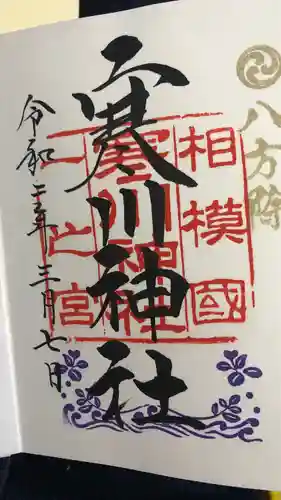 八方除
相模國
寒川神社
一之宮
令和二年三月七日